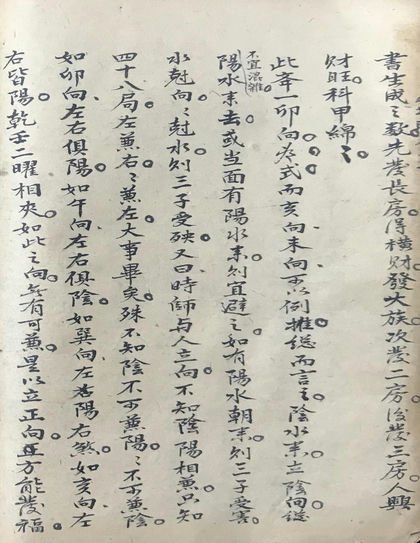 書生成之数先發長房得横財發大族次發二房後發三房人興
財旺科甲綿〻
此舉一卯向為式而亥向未向可以例推総而言之陰水來立陰向総
不宜混雜
陽水來去或当面有陽水來則宜避之如有陽水朝來則三子受害
水尅向〻尅水則三子受殃又曰時師与人立向不知陰陽相兼只知
四十八局左兼右〻兼左大事畢矣殊不知陰不可兼陽〻不可兼陰
如卯向左右俱陽如午向左右俱陰如巽向左陽右煞如亥向左
右皆陽乾壬二曜相夾如此之向無有可兼是以立正向正方能發福